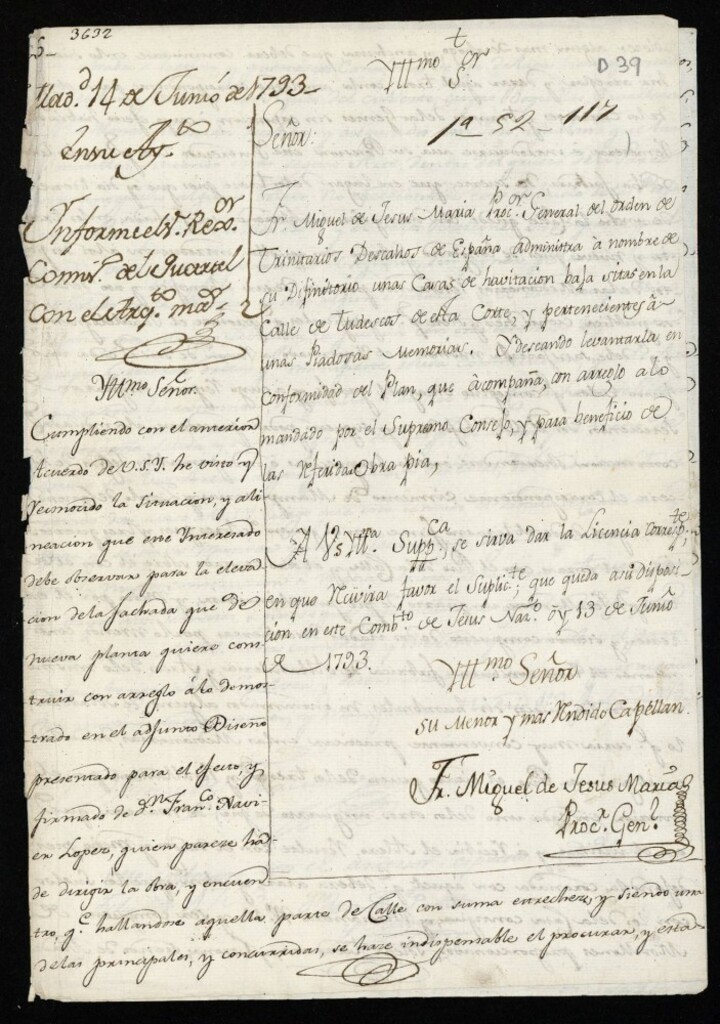 3632
D 39
Yllmo Sor
t
1a - 52 - 117
Mad.d 14 de Junio de 1793
En su Ay.to
Informe el Sr. Rexor.
Comis.o del Quartel
con el Arq.to mor.
Yllmo Señor
Cumpliendo con el anterior
Acuerdo de V.S.Y. he visto y
reconocido la situacion, y ali
neacion que este Interesado
debe observar para la eleva
cion de la fachada que de
nueva planta quiere cons
truir con arreglo á lo demos
trado en el adjunto Diseño
presentado para el efecto, y
firmado de Dn Franco Xavi
er Lopez, quien pareze ha
de dirigir la obra, y encuen
tro, qe hallandose aquella parte de Calle con suma estrechez, y siendo una
de las principales, y concurridas, se haze indispensable el procurar, y esta
Señor.
Fr. Miguel de Jesus Maria Procor. General del orden de
Trinitarios Descalzos de España administra à nombre de
su Difinitorio unas Casas de havitacion baja sitas en la
Calle de Tudescos de esta Corte, y pertenecientes à
unas Piadosas Memorias. Y deseando levantarla en
conformidad del Plan, que àcompaña, con arreglo a lo
mandado por el Supremo Consejo, y para beneficio de
las referida Obra pia,
A V.S Yllma. Suppca se sirva dar la Licencia correspte
en que Recivira favor el Suplicte; que queda a su disposi-
cion en este Combto de Jesus Nazno òy 13 de Junio
de 1793.
Yllmo Señor
su Menor y mas Rndido Capellan
Fr. Miguel de Jesus Maria
Procr. Genl.